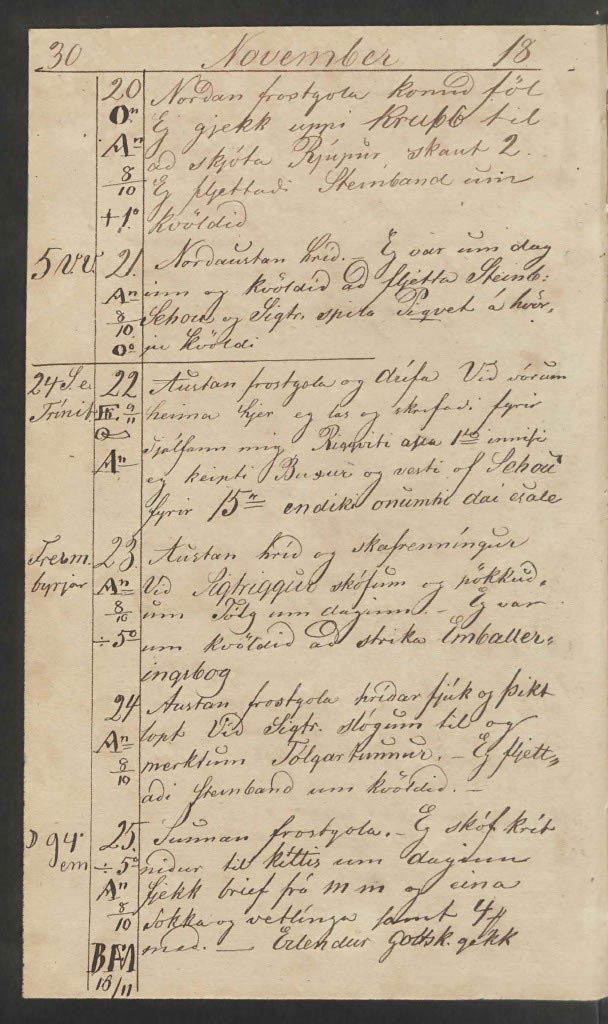 30 November 18
20 Nordan frostgola komid föl
On Eg gjekk uppi Krubb til
An ad skjóta Rjúpur skaut 2.
8/10 Eg fljettadi Steinband um
+1° kvöldid
5 VV. 21. Nordaustan hríd. - Eg var um dag
An inn og kvöldid ad fljetta Steinb:
8/10 Schou og Sigtr. spila Piqvet á hvör-
0° ju kvöldi
24 S. e. 22 Austan frostgola og drífa Vid vórum
Trínit. heima hjer eg las og skrifadi fyrir
Sjálfann mig
An eg keipti Buxur og vesti of Schou
fyrir 15
Fresm. 23. Austan hríd og skafrenníngur
byrjar An Vid Sigtriggur skófum og pökkud-
8/10 um Tólg um daginn. - Eg var
÷5° um kvöldid ad strika Emballer-
ingsbog
24 Austan frostgola hrídar fjúk og þikt
An lopt Vid Sigtr. slógum til og
8/10 merktum Tólgartunnur. - Eg fljett-
adi Steinband um kvöldid. -
94 25. Sunnan frostgola. - Eg skóf krít
em ÷5° nidur til kíttis um daginn
An fjekk brief frá m m og eina
8/10 Sokka og vetlínga samt 4
BFM med. - Erlendur Gottsk. gekk
18/11